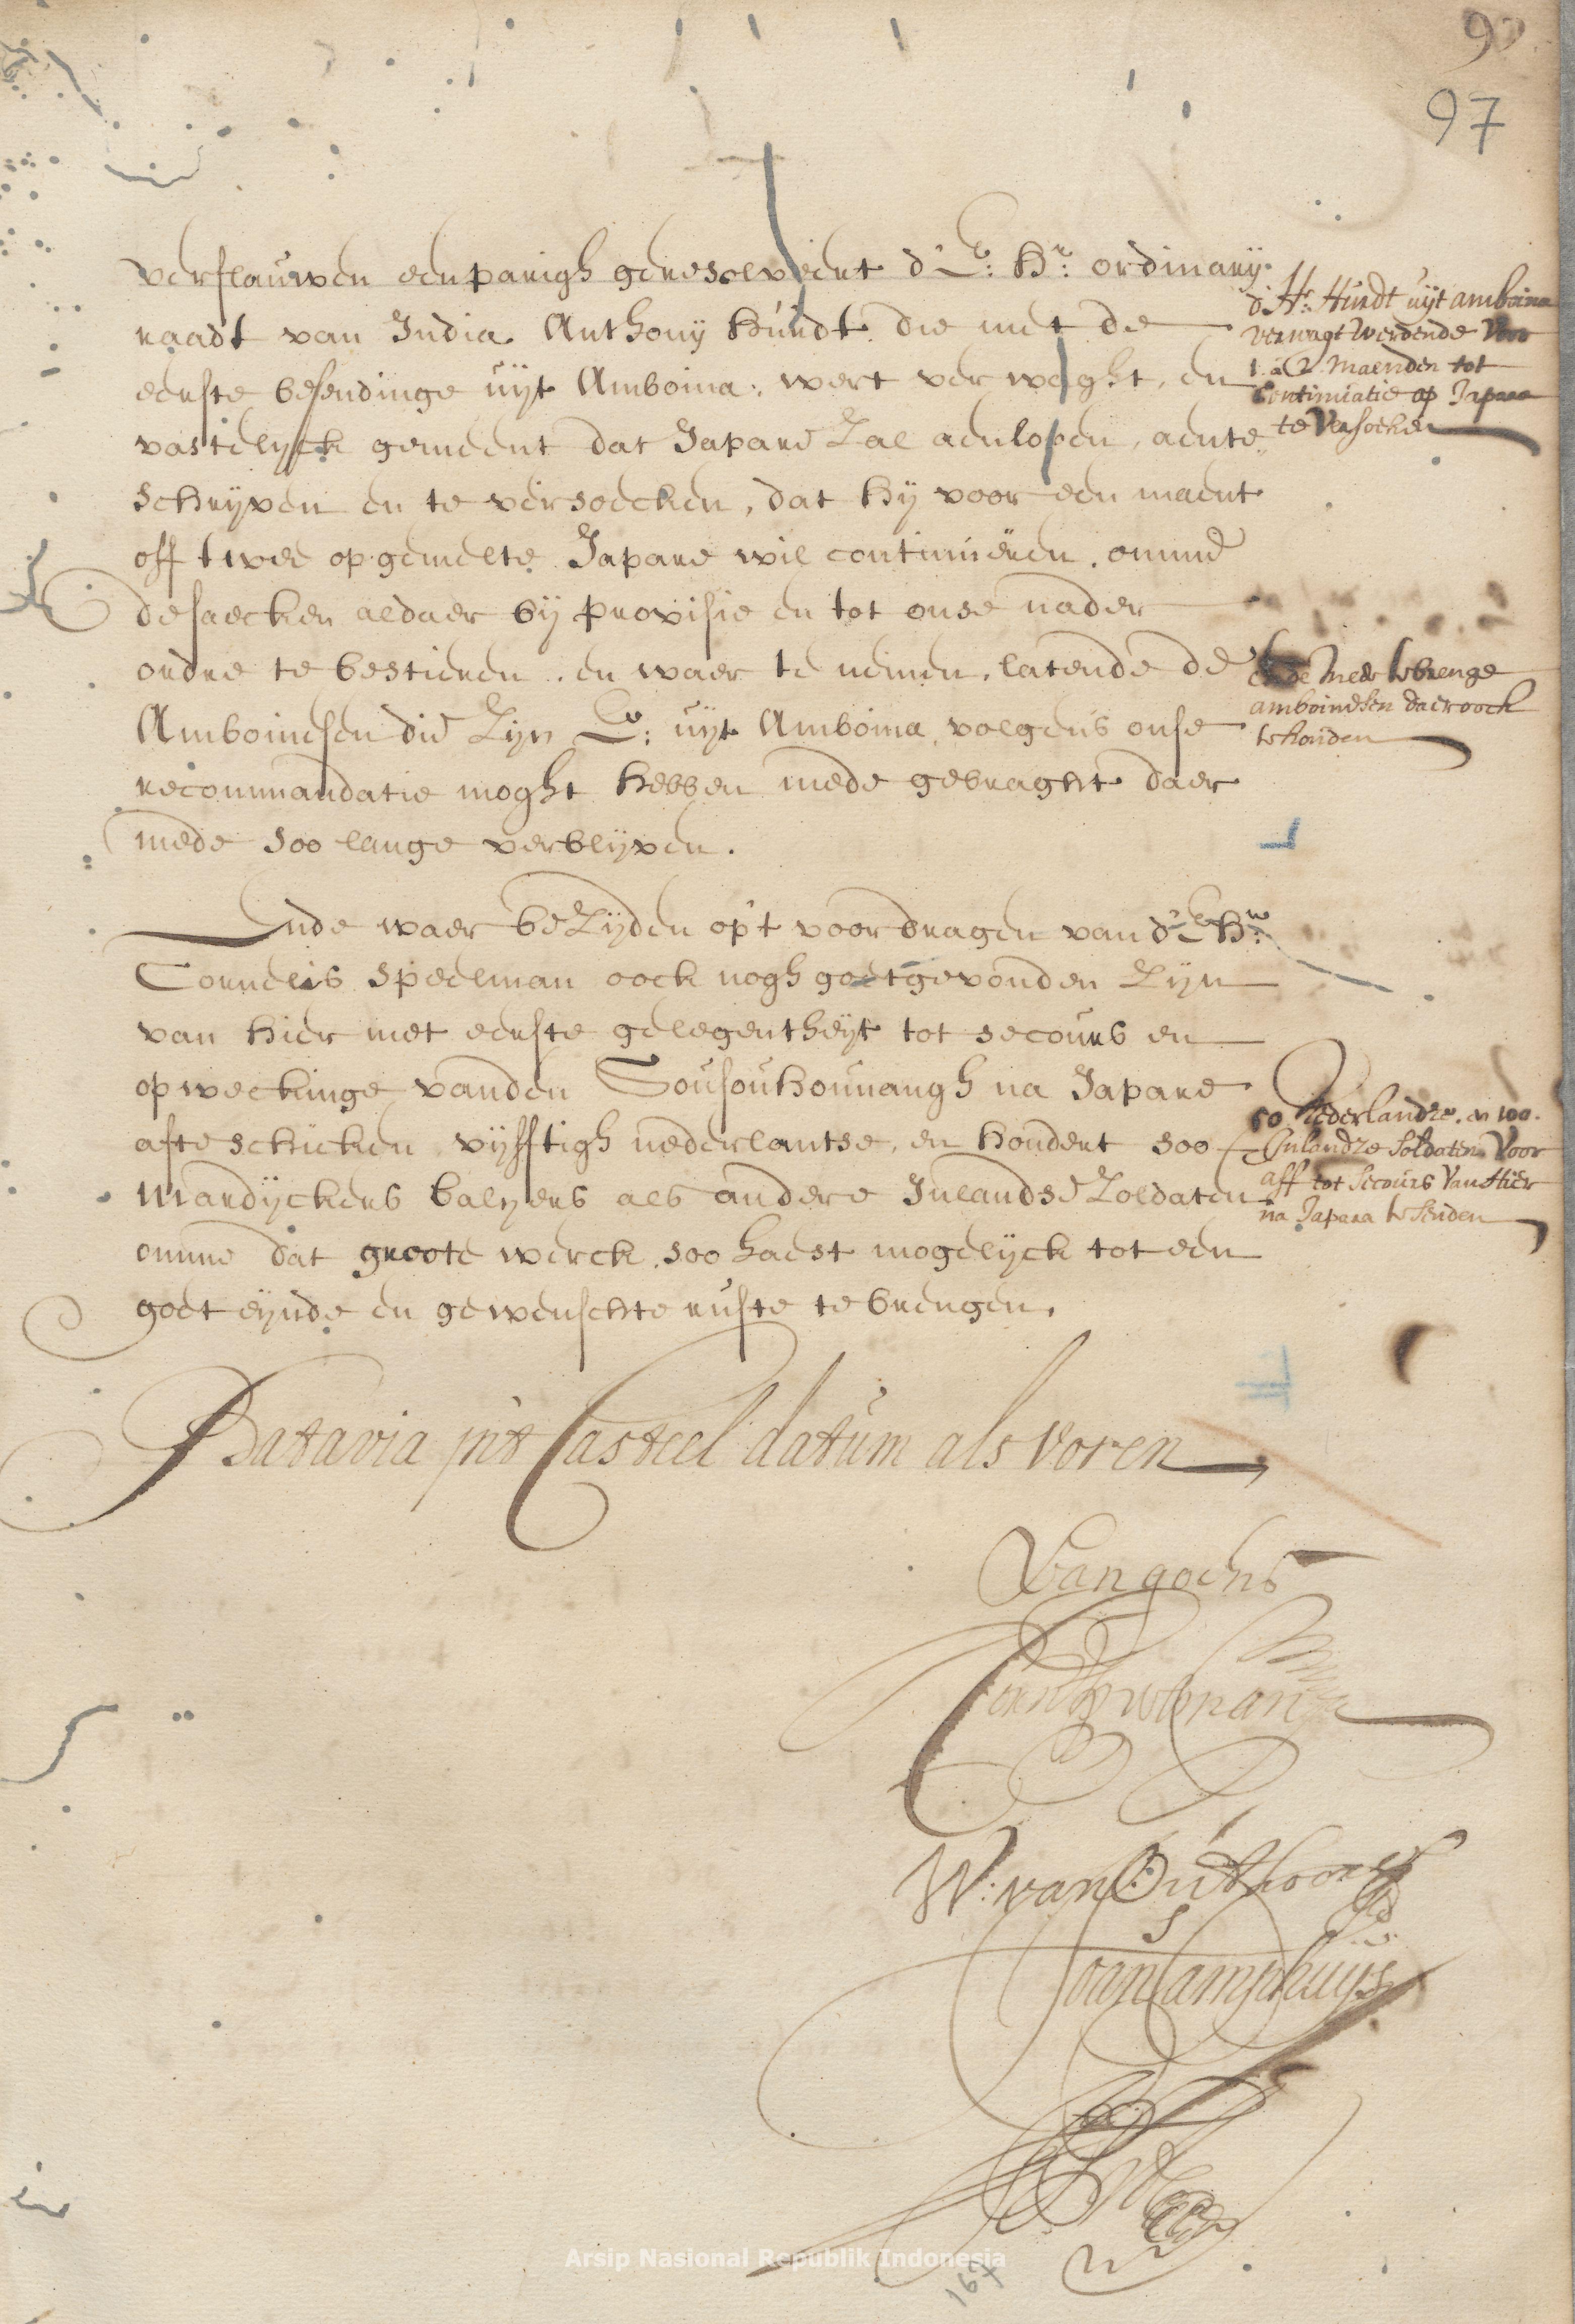 97
verflauwen eenparigh geresolveert d' E: Hr: ordinarij
raadt van India Anthonij Hurdt die met de
eerste besendinge uijt Amboina, wert verwaght, en
vastelyck gemeent dat Japare zal aenlopen, aente
schrijven en te versoecken, dat hij voor een maent
off twee op gemelte Japare wil continuëren, omme
de saecken aldaer bij provisie en tot onse nader
ordre te bestieren, en waer te nemen, latende de
Amboinesen die zijn E: uijt Amboina, volgens onse
recommandatie moght hebben mede gebraght daer
mede soo lange verblijven.
d' Hr: Hurdt uijt amboina
verwagt werdende voor
1. a 2. maenden tot
Continuatie op Japara
te versoeken
mede te brenge
amboindsen daer oock
te houden
Ende waer bezijden op't voordragen van d' E Hr:
Cornelis Speelman oock nogh goetgevonden zijn
van hier met eerste gelegentheijt tot secours en
opweckinge vanden Sousouhounangh na Japare
afte schicken, vijfftigh nederlantse, en hondert soo
mardijckers baljers als andere Inlandse zoldaten
omme dat groote werck, soo haest mogelijck tot een
goet eijnde en gewenschte ruste te brengen.
50 Nederlandze, en 100.
Inlandze Soldaten voor
aff tot Secours van Hier
na Japara te Senden
Batavia in't Casteel datum als voren
Van goens
W: van Outhoorn
Joan Camphuijs
167
Arsip Nasional Republik Indonesia